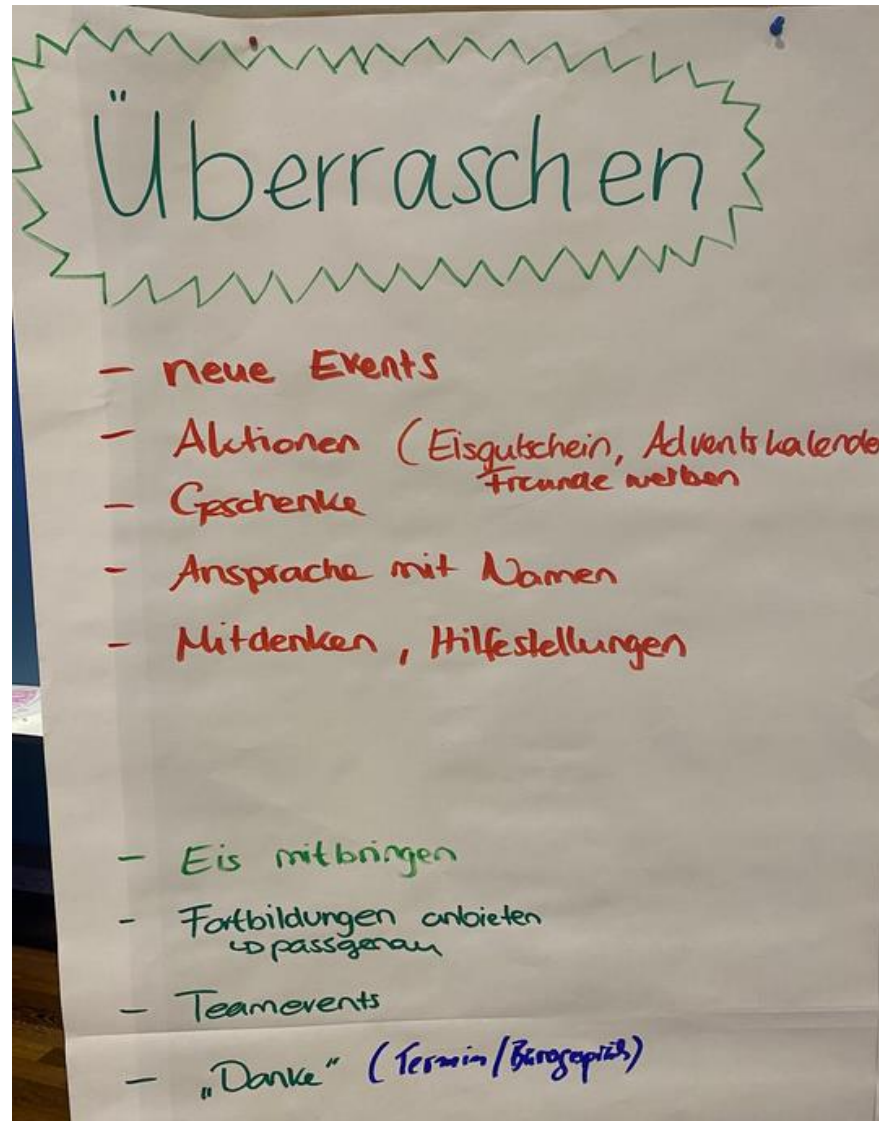 Überraschen
- neue Events
- Aktionen (Eisgutschein, Adventskalende
Freunde werben
- Geschenke
- Ansprache mit Namen
- Mitdenken, Hilfestellungen
- Eis mitbringen
- Fortbildungen anbieten
↳ passgenau
- Teamevents
- „Danke“ (Termin/Bürogespräch)